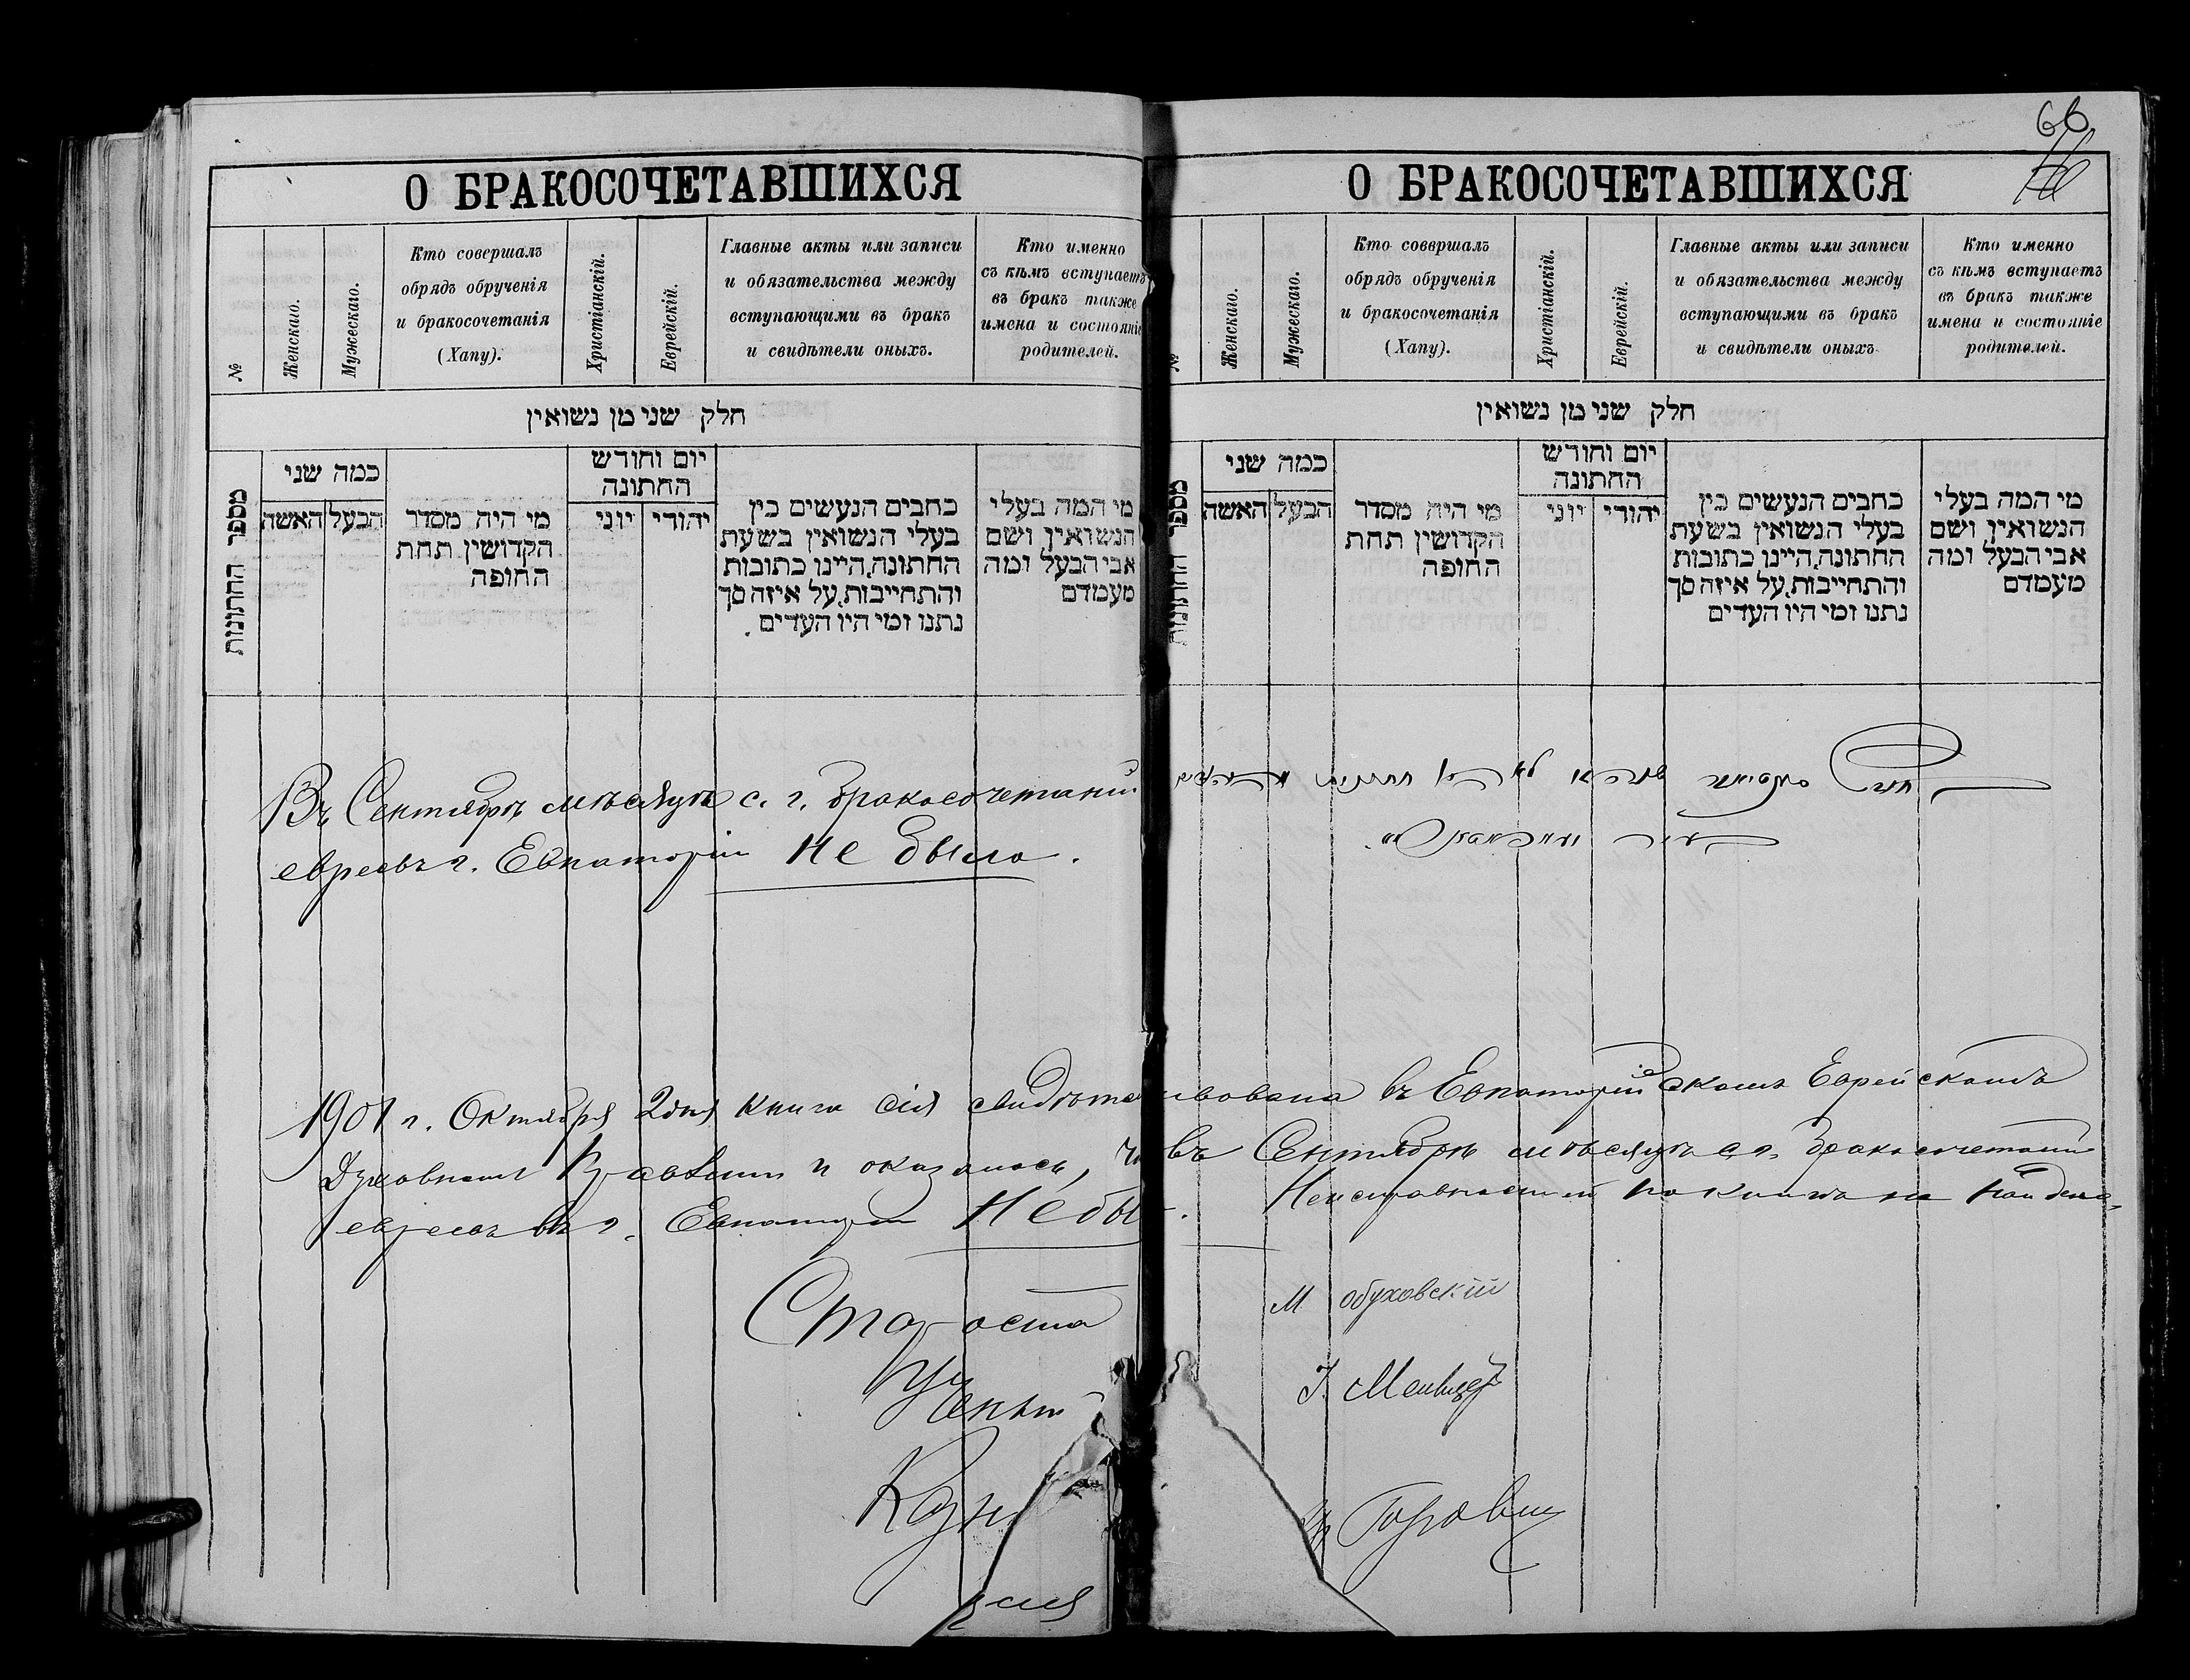 66
О БРАКОСОЧЕТАВШИХСЯ
№
Женскаго.
Мужескаго.
Кто совершалъ
обрядъ обрученія
и бракосочетанія
(Хапу).
Христіанскій.
Еврейскій.
Главные акты или записи
и обязательства между
вступающими въ бракъ
и свидѣтели оныхъ.
Кто именно
съ кѣмъ вступаетъ
въ бракъ также
имена и состояніе
родителей.
חלק שני מן נשואין
מספר החתונות
כמה שני
האשה
הבעל
מי היה מסדר
הקדושין תחת
החופה
יום וחודש
החתונה
יוני
יהודי
כתבים הנעשים בין
בעלי הנשואין בשעת
החתונה, היינו כתובות
והתחייבות, על איזה סך
נתנו ומי היו העדים.
מי המה בעלי
הנשואין ושם
אבי הבעל ומה
מעמדם
Въ Сентябрѣ мѣсяцѣ с. г. бракосочетаній
евреевъ г. Евпаторіи не было.
О БРАКОСОЧЕТАВШИХСЯ
№
Женскаго.
Мужескаго.
Кто соввршалъ
обрядъ обрученія
и бракосочетанія
(Хапу).
Христіанскій.
Еврейскій.
Главные акты или записи
и обязательства между
вступающими въ бракъ
и свидѣтели оныхъ.
Кто именно
съ кѣмъ вступаетъ
въ бракъ также
имена и состояніе
родителей.
חלק שני מן נשואין
מספר החתונות
כמה שני
האשה
הבעל
מי היה מסדר
הקדושין תחת
החופה
יום וחודש
החתונה
יוני
יהודי
כתבים הנעשים בין
בעלי הנשואין בשעת
החתונה, היינו כתובות
והתחייבות, על איזה סך
נתנו ומי היו העדים
מי המה בעלי
הנשואין ושם
אבי הבעל ומה
מעמדם
1901 г. Октября 2 дня книга сія свидѣтельствована въ Евпаторійскомъ Еврейскомъ
Духовномъ Правленіи и оказалось, что въ Сентябрѣ мѣсяцѣ с. г. бракосочетаній
евреевъ въ г. Евпаторіи не бы. Неисправностей по книгѣ не найдено.
Староста М Обуховскій
Учены И. Меивцер
Казн Горовиц